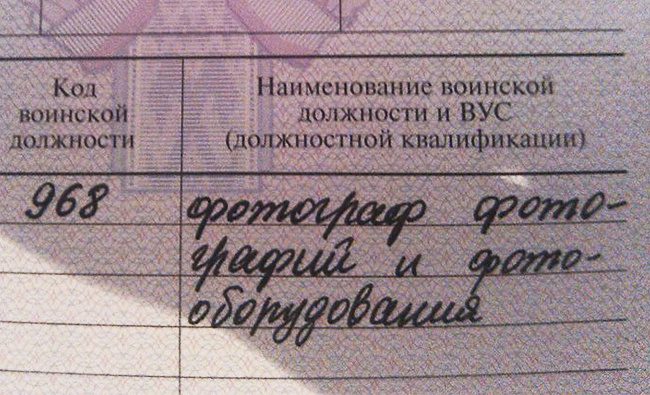 Код
воинской
должности
Наименование воинской
должности и ВУС
(должностной квалификации)
968
фотограф фото-
графий и фото-
оборудования